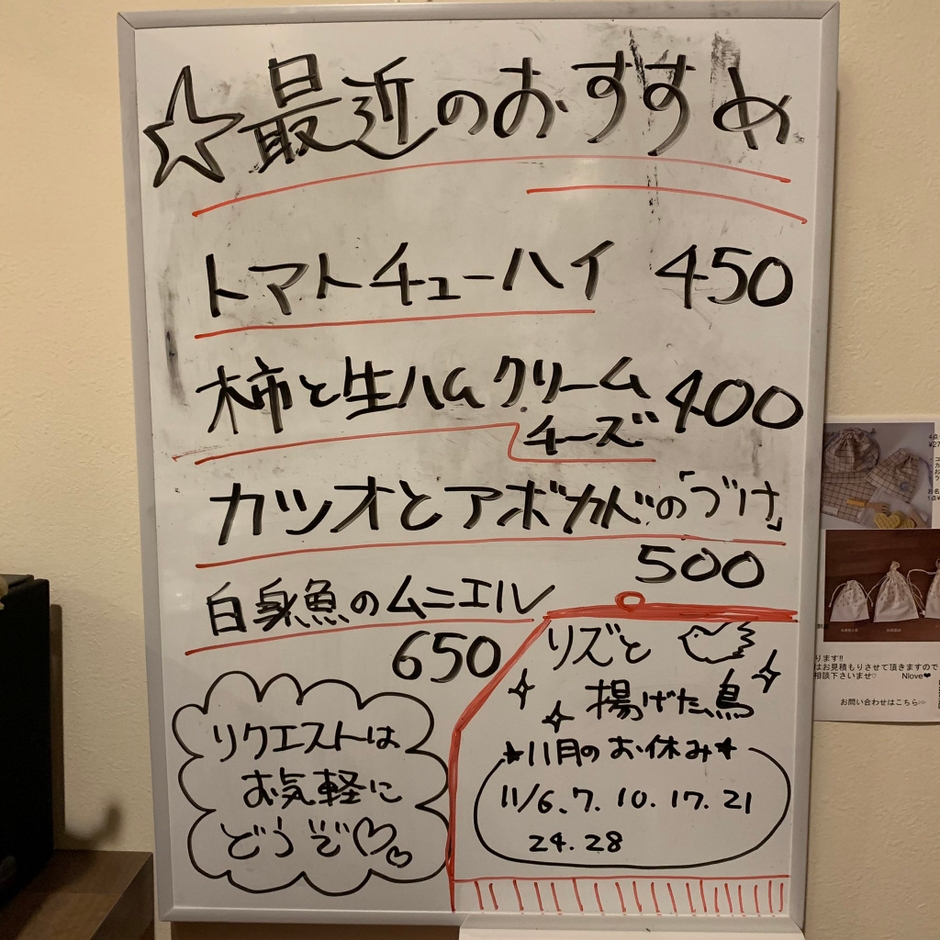 ☆最近のおすすめ
トマトチューハイ 450
柿と生ハムクリーム
チーズ 400
カツオとアボカドの「づけ」
500
白身魚のムニエル
650
リクエストは
お気軽に
どうぞ♡♡
リズと
揚げた鳥
★11月のお休み★
11/6.7.10.17.21
24.28
ります!!
はお見積もりさせて頂きますので
相談下さいませ♡ Nlove❤
お問い合わせはこちら